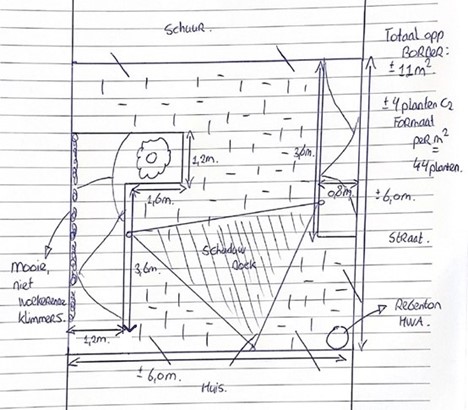 Schuur.
Totaal opp
BORDER:
± 11m²
± 4 planten C2
FORMAAT
per m²
=
44 planten.
1,2m.
3,6m.
1,6m.
0,8m.
± 6,0m.
Schaduw
doek
STRAAT.
Mooie,
niet
woekerende
klimmers.
3,6m.
1,2m.
Regenton
HWA.
± 6,0m.
Huis.